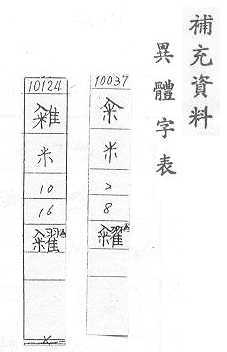 補充資料
異體字表
10037
籴
米
2
8
糴
10124
米
10
16
糴